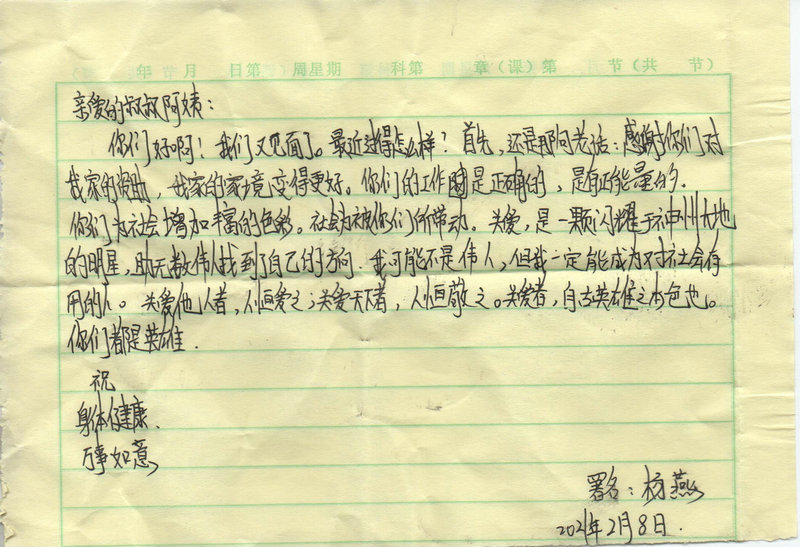 年 月 日第 周星期 科第 章(课)第 节(共 节)
亲爱的叔叔阿姨：
你们好啊！我们又见面了。最近过得怎么样？首先，还是那句老话：感谢你们对
我家的资助，我家的家境变得更好。你们的工作是正确的，是有正能量的.
你们为社会增加丰富的色彩。社会为被你们所带动。关爱，是一颗闪耀于神州大地
的明星，助无数伟人找到了自己的方向.我可能不是伟人，但我一定能成为对社会有
用的人。关爱他人者，人恒爱之；关爱天下者，人恒敬之。关爱者，自古英雄之本色也。
你们都是英雄.
祝
身体健康.
万事如意
署名：杨燕
2021年2月8日.